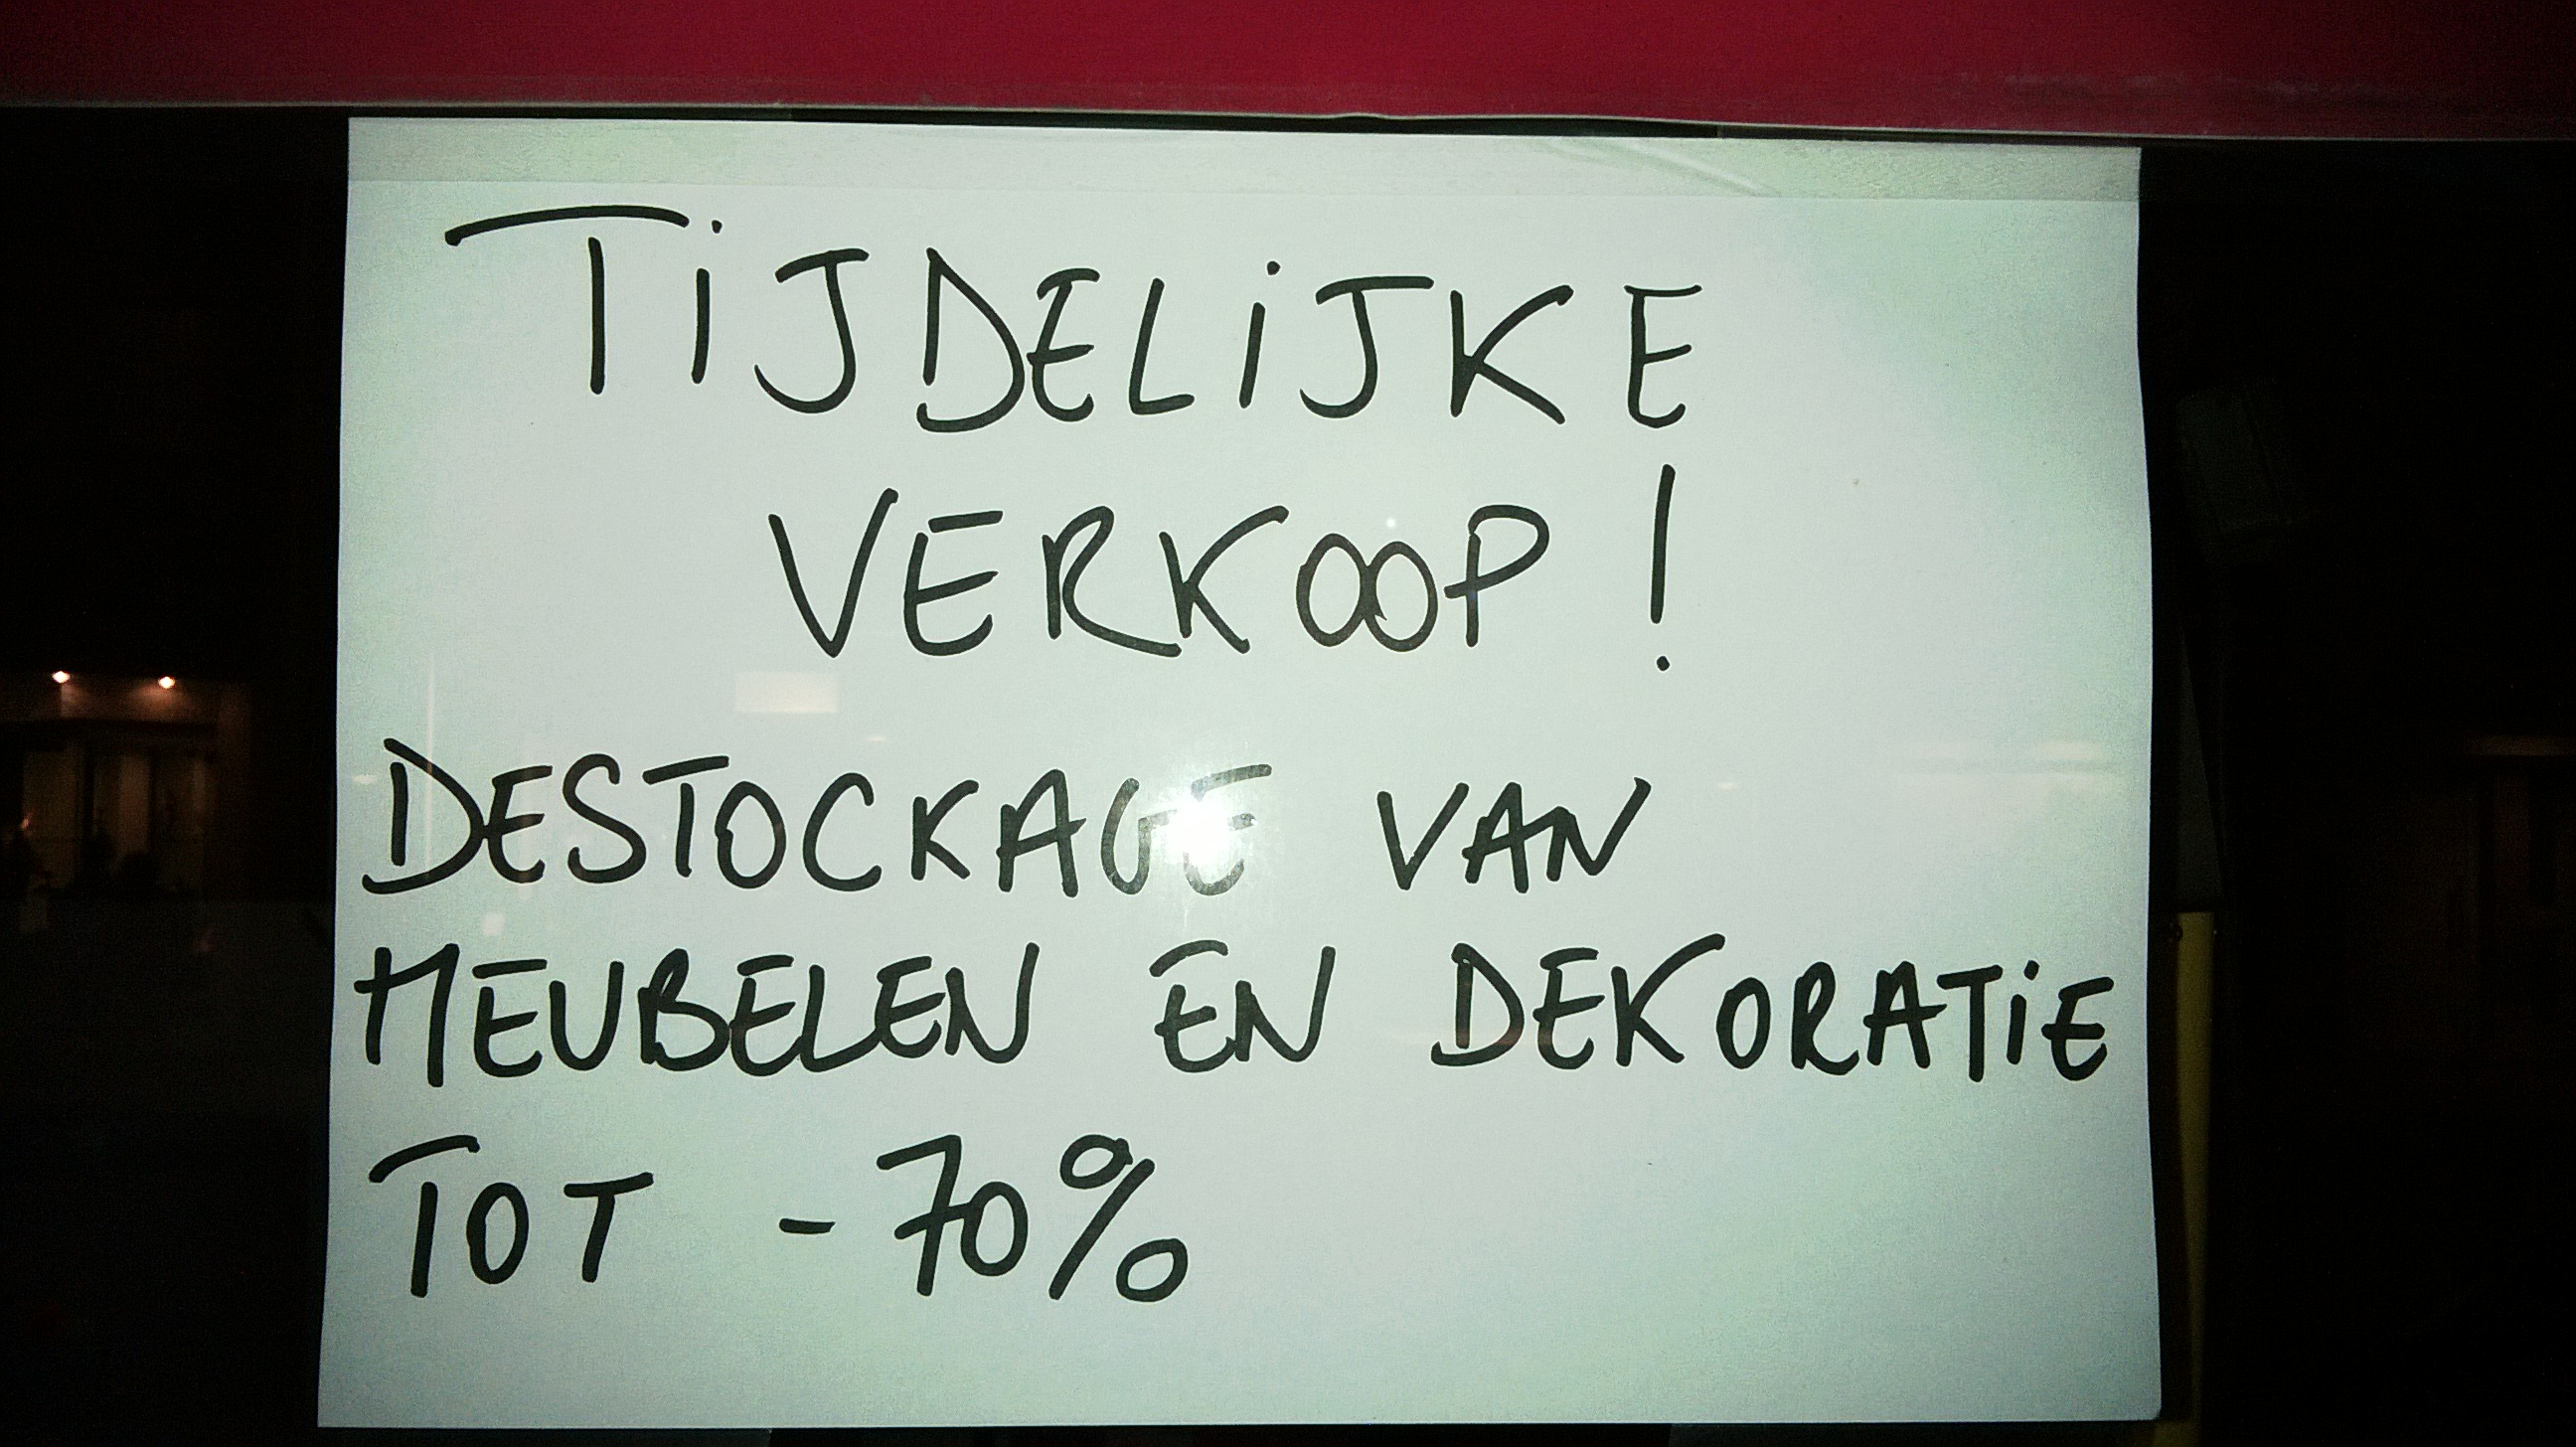 TIJDELIJKE
VERKOOP !
DESTOCKAGE VAN
MEUBELEN EN DEKORATIE
TOT -70%